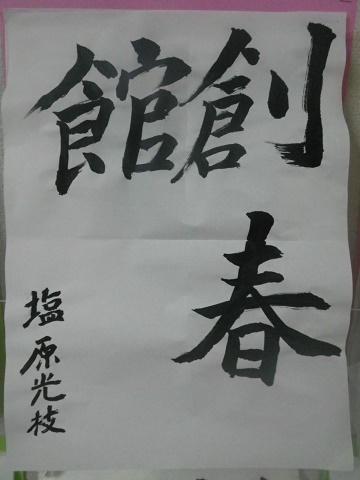 創春
館
塩原光枝